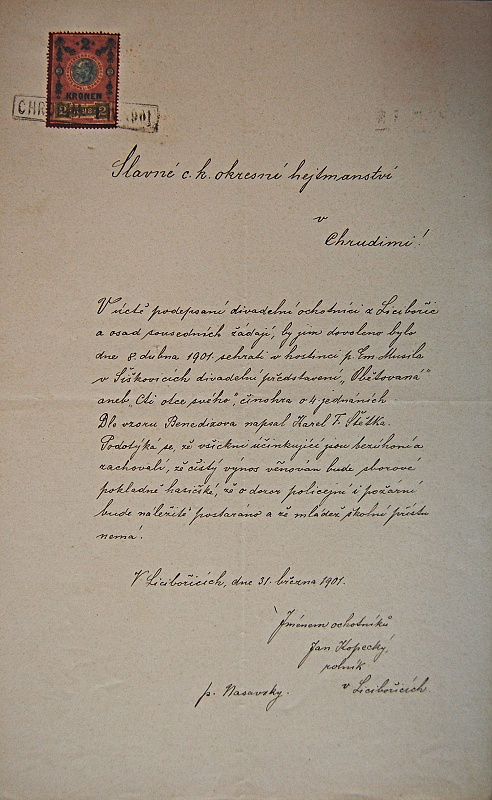 2
KRONEN
2 2
CHR 1901
Slavné c. k. okresní hejtmanství
v
Chrudimi!
V úctě podepsaní divadelní ochotníci z Licibořic
a osad sousedních žádají, by jim dovoleno bylo
dne 8. dubna 1901 sehráti v hostinci p. Em. Musila
v Šiškovicích divadelní představení „Obětovaná"
aneb „Cti otce svého", činohra o 4 jednáních.
Dle vzoru Benedixova napsal Karel F. Štětka.
Podotýká se, že všickni účinkující jsou bezúhonní a
zachovalí, že čistý výnos věnován bude sborové
pokladně hasičské, že o dozor policejní i požární
bude náležitě postaráno a že mládež školní přístu
nemá.
V Licibořicích, dne 31. března 1901.
Jménem ochotníků
Jan Kopecký,
rolník
v Licibořicích.
p. Nasavrky.